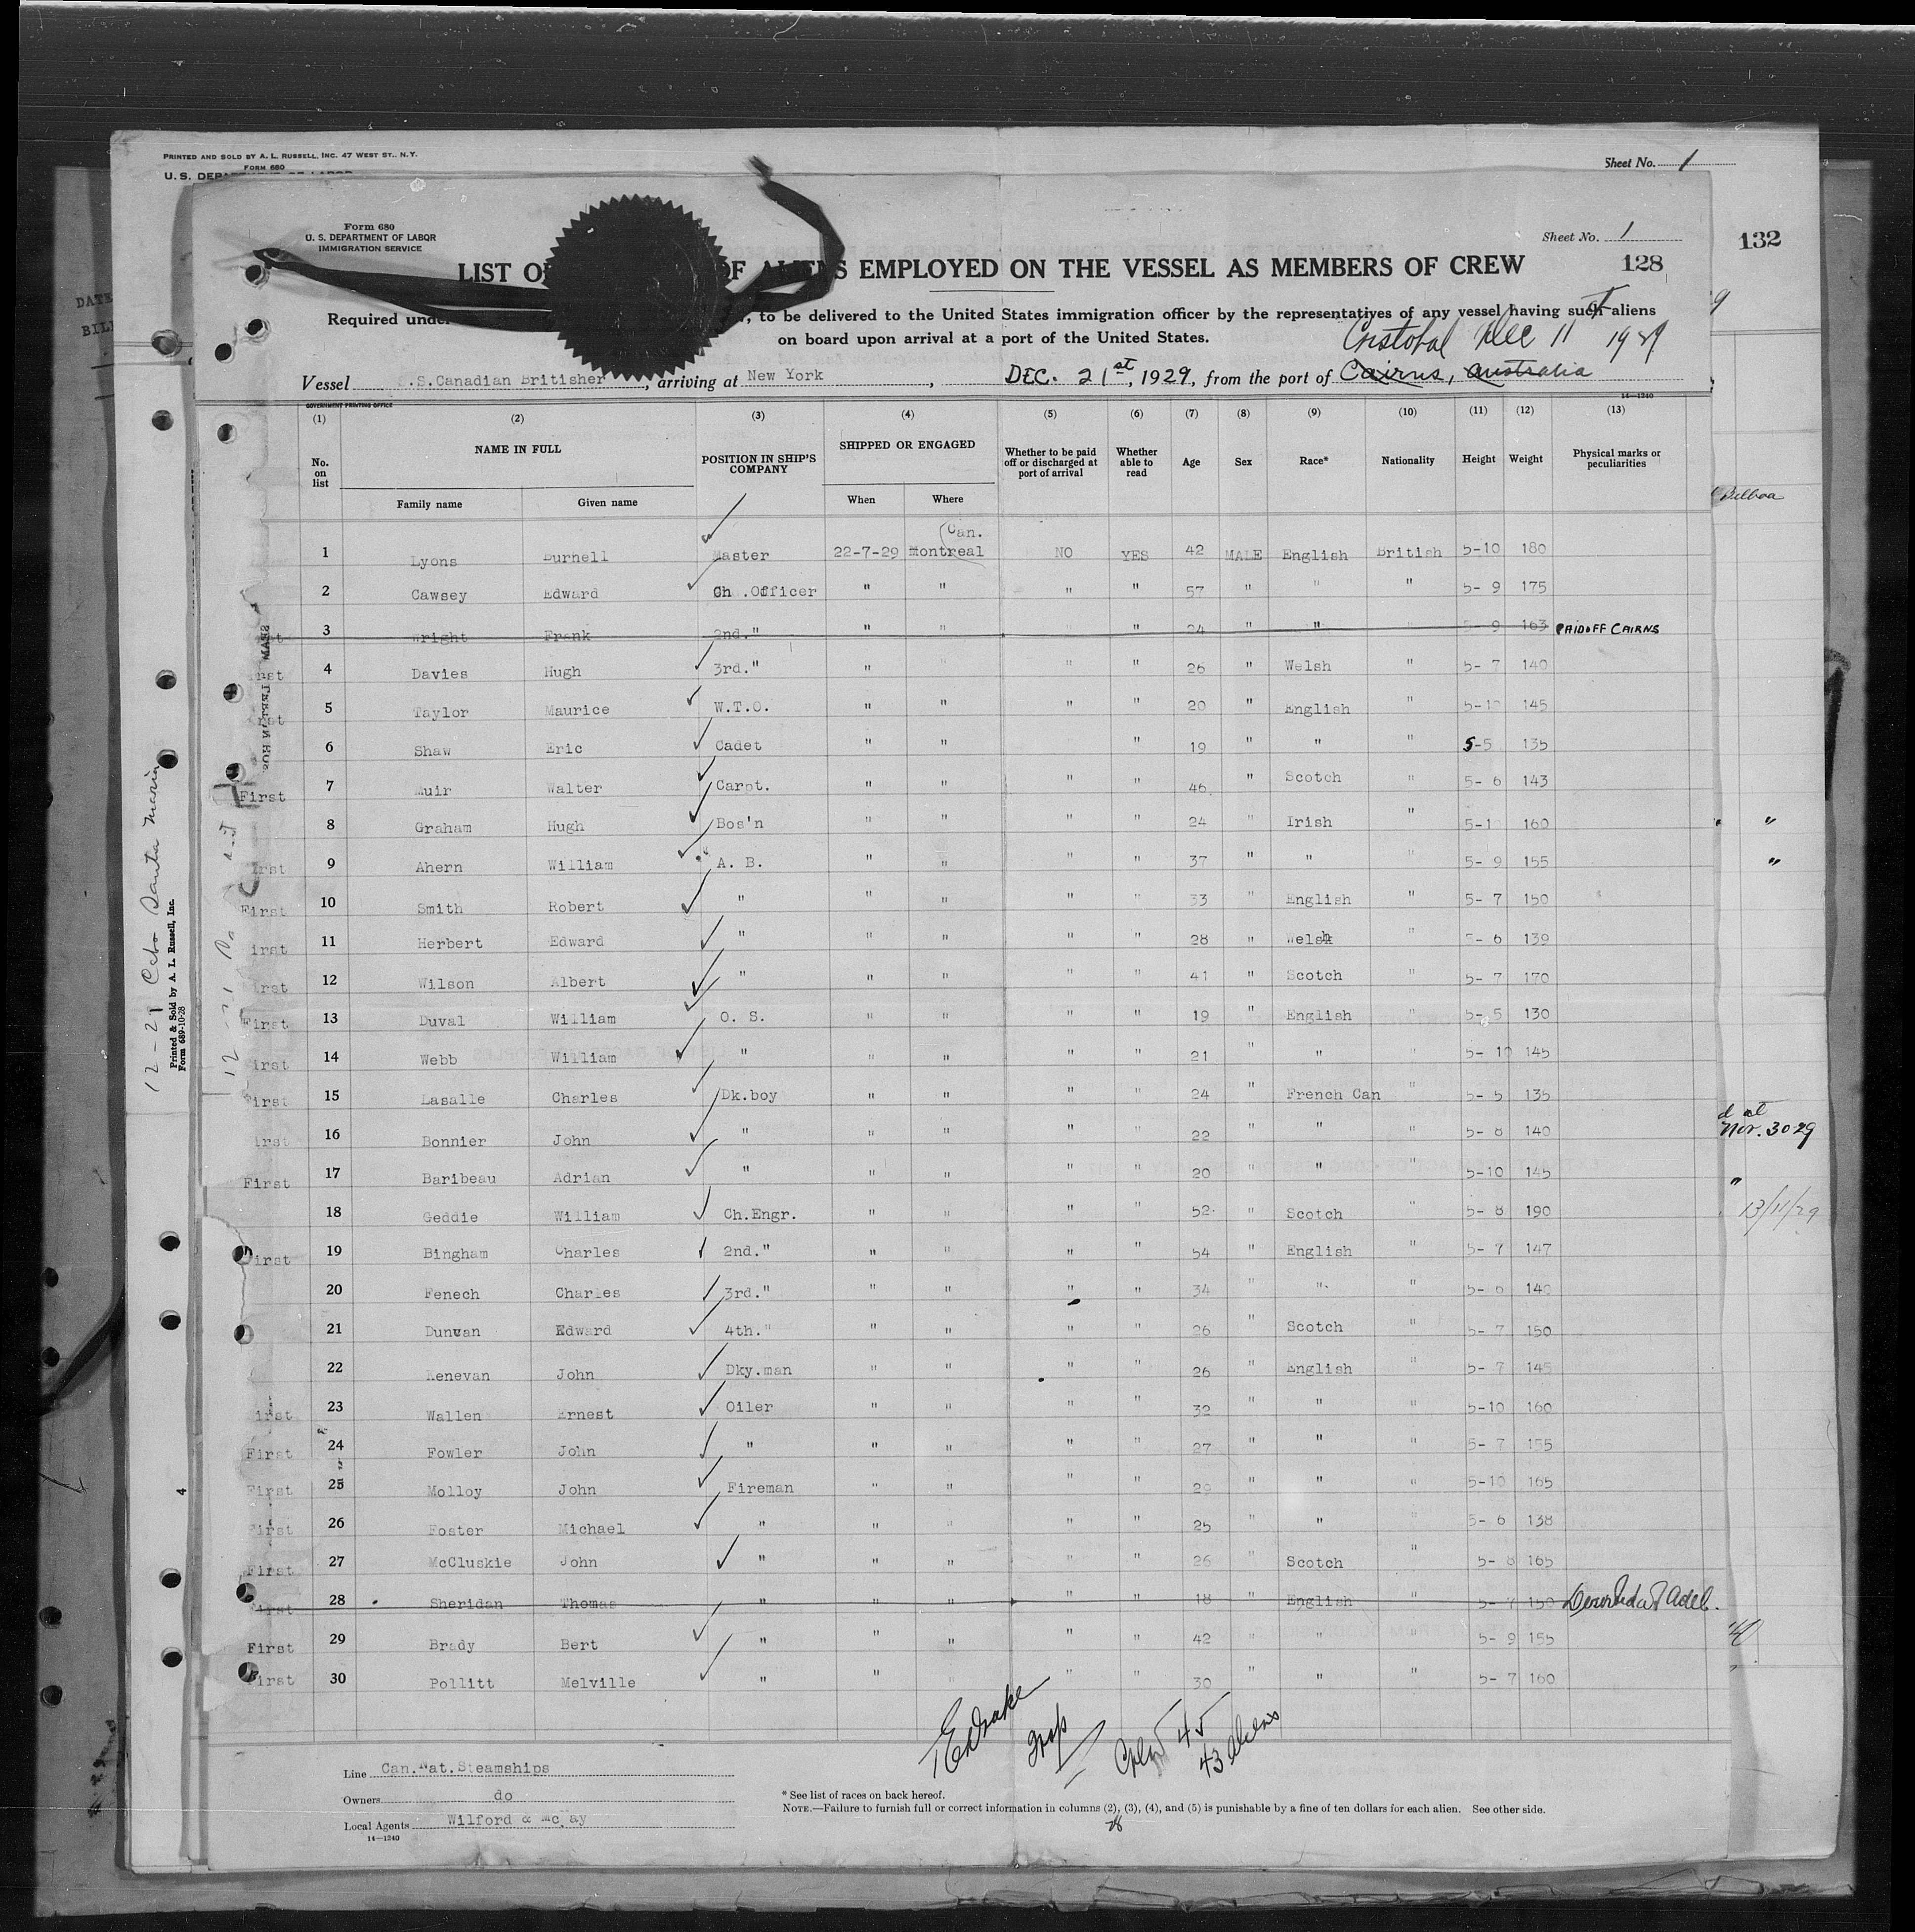 PRINTED AND SOLD BY A. L. RUSSELL, INC. 47 WEST ST., N.Y.
FORM 680
U. S. DEPARTMENT OF LABOR
Sheet No. 1
132
Form 680
U. S. DEPARTMENT OF LABOR
IMMIGRATION SERVICE
Sheet No. 1
128
LIST O F ALIENS EMPLOYED ON THE VESSEL AS MEMBERS OF CREW
Required under , to be delivered to the United States immigration officer by the representatives of any vessel having such aliens
on board upon arrival at a port of the United States.
Cristobal Dec 11 1929
Vessel S.S.Canadian Britisher, arriving at New York, DEC. 21st, 1929, from the port of Cairns, Australia
GOVERNMENT PRINTING OFFICE
14—1240
(1) (2) (3) (4) (5) (6) (7) (8) (9) (10) (11) (12) (13)
No. on list NAME IN FULL POSITION IN SHIP'S COMPANY SHIPPED OR ENGAGED Whether to be paid off or discharged at port of arrival Whether able to read Age Sex Race* Nationality Height Weight Physical marks or peculiarities
Family name Given name When Where
Bilboa
(Can.
1 Lyons Burnell Master 22-7-29 Montreal NO YES 42 MALE English British 5-10 180
2 Cawsey Edward Ch .Officer " " " " 57 " " " 5- 9 175
3 Wright Frank 2nd." " " " " 24 " " " 5- 9 163 PAID OFF CAIRNS
4 Davies Hugh 3rd." " " " " 26 " Welsh " 5- 7 140
5 Taylor Maurice W.T.O. " " " " 20 " English " 5-10 145
6 Shaw Eric Cadet " " " " 19 " " " 5-5 135
First 7 Muir Walter Carpt. " " " " 46 " Scotch " 5- 6 143
8 Graham Hugh Bos'n " " " " 24 " Irish " 5-10 160 "
9 Ahern William A. B. " " " " 37 " " " 5- 9 155 "
First 10 Smith Robert " " " " " 33 " English " 5- 7 150
First 11 Herbert Edward " " " " " 28 " Welsh " 5- 6 139
First 12 Wilson Albert " " " " " 41 " Scotch " 5- 7 170
First 13 Duval William O. S. " " " " 19 " English " 5- 5 130
First 14 Webb William " " " " " 21 " " " 5- 10 145
First 15 Lasalle Charles Dk.boy " " " " 24 " French Can " 5- 5 135
First 16 Bonnier John " " " " " 22 " " " 5- 8 140
d at
Nov. 30 29
First 17 Baribeau Adrian " " " " " 20 " " " 5-10 145 "
18 Geddie William Ch.Engr. " " " " 52 " Scotch " 5- 8 190
13/11/29
First 19 Bingham Charles 2nd." " " " " 54 " English " 5- 7 147
20 Fenech Charles 3rd." " " " " 34 " " " 5- 6 140
21 Dunvan Edward 4th." " " " " 26 " Scotch " 5- 7 150
22 Kenevan John Dky.man " " " " 26 " English " 5- 7 145
First 23 Wallen Ernest Oiler " " " " 32 " " " 5-10 160
First 24 Fowler John " " " " " 27 " " " 5- 7 155
First 25 Molloy John Fireman " " " " 29 " " " 5-10 165
First 26 Foster Michael " " " " " 25 " " " 5- 6 138
First 27 McCluskie John " " " " " 26 " Scotch " 5- 8 165
First 28 Sheridan Thomas " " " " " 18 " English " 5- 7 150 Deserted at Adel.
First 29 Brady Bert " " " " " 42 " " " 5- 9 155
First 30 Pollitt Melville " " " " " 30 " " " 5- 7 160
45
43 Aliens
Line Can.Nat.Steamships
Owners do
Local Agents Wilford & McKay
14—1240
* See list of races on back hereof.
NOTE.—Failure to furnish full or correct information in columns (2), (3), (4), and (5) is punishable by a fine of ten dollars for each alien. See other side.
12-21 Cabo Santa Maria
Printed & Sold by A. L. Russell, Inc.
Form 689-10-28
4